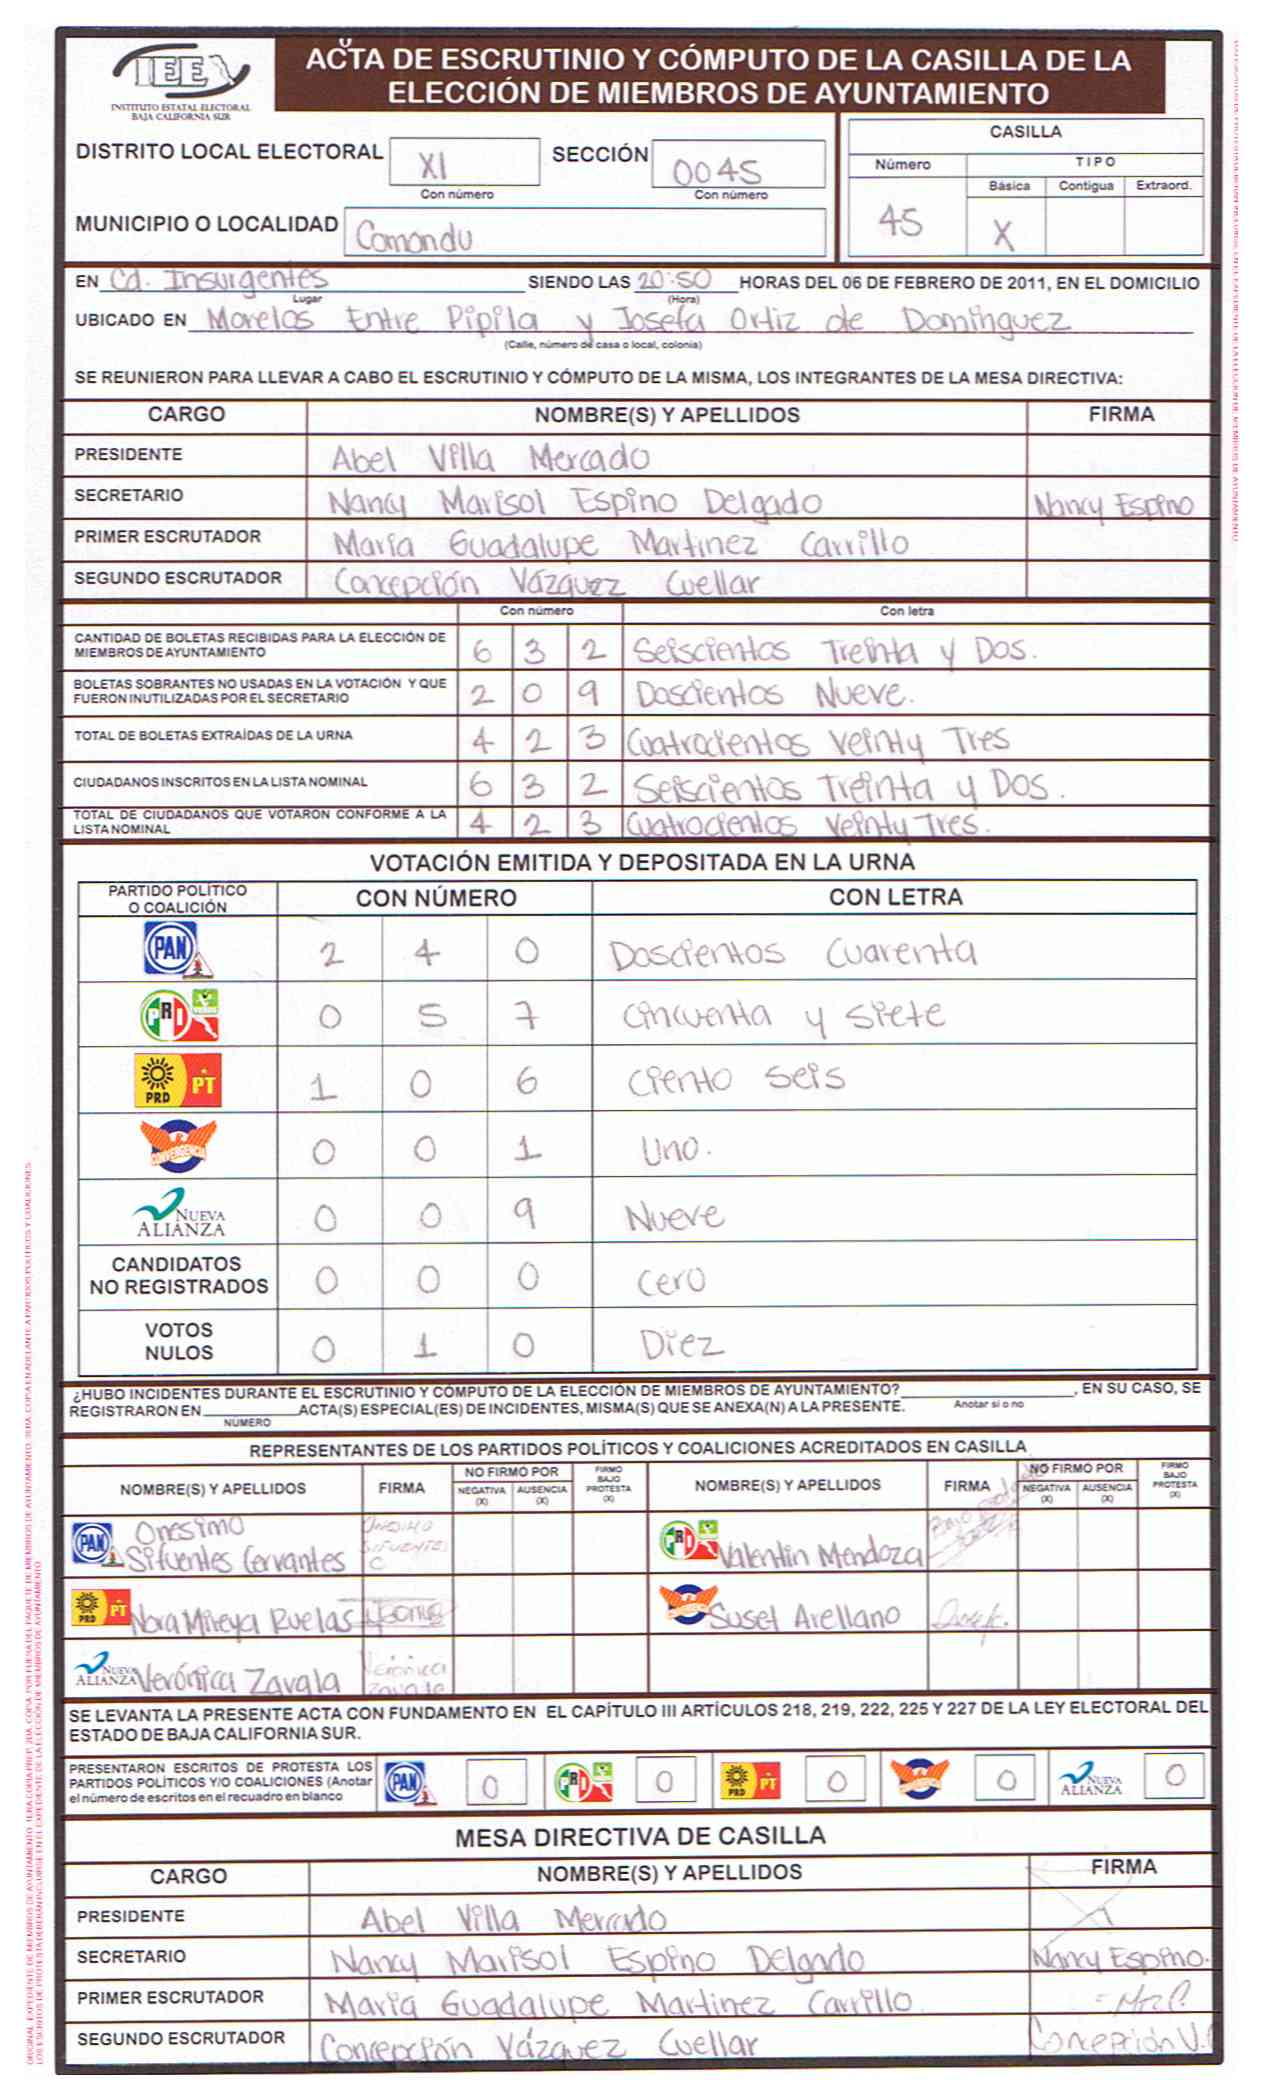 IEE
INSTITUTO ESTATAL ELECTORAL
BAJA CALIFORNIA SUR
ACTA DE ESCRUTINIO Y CÓMPUTO DE LA CASILLA DE LA
ELECCIÓN DE MIEMBROS DE AYUNTAMIENTO
DISTRITO LOCAL ELECTORAL XI SECCIÓN 0045
Con número Con número
MUNICIPIO O LOCALIDAD Comondu
CASILLA
Número TIPO
Básica Contigua Extraord.
45 X
EN Cd. Insurgentes SIENDO LAS 20:50 HORAS DEL 06 DE FEBRERO DE 2011, EN EL DOMICILIO
Lugar (Hora)
UBICADO EN Morelos Entre Pipila y Josefa Ortiz de Dominguez
(Calle, número de casa o local, colonia)
SE REUNIERON PARA LLEVAR A CABO EL ESCRUTINIO Y CÓMPUTO DE LA MISMA, LOS INTEGRANTES DE LA MESA DIRECTIVA:
CARGO NOMBRE(S) Y APELLIDOS FIRMA
PRESIDENTE Abel Villa Mercado
SECRETARIO Nancy Marisol Espino Delgado Nancy Espino
PRIMER ESCRUTADOR María Guadalupe Martinez Carrillo
SEGUNDO ESCRUTADOR Concepción Vázquez Cuellar
Con número Con letra
CANTIDAD DE BOLETAS RECIBIDAS PARA LA ELECCIÓN DE
MIEMBROS DE AYUNTAMIENTO 6 3 2 Seiscientos Treinta y Dos.
BOLETAS SOBRANTES NO USADAS EN LA VOTACIÓN Y QUE
FUERON INUTILIZADAS POR EL SECRETARIO 2 0 9 Doscientos Nueve.
TOTAL DE BOLETAS EXTRAÍDAS DE LA URNA 4 2 3 Cuatrocientos Veinty Tres
CIUDADANOS INSCRITOS EN LA LISTA NOMINAL 6 3 2 Seiscientos Treinta y Dos.
TOTAL DE CIUDADANOS QUE VOTARON CONFORME A LA
LISTA NOMINAL 4 2 3 Cuatrocientos Veinty Tres.
VOTACIÓN EMITIDA Y DEPOSITADA EN LA URNA
PARTIDO POLÍTICO
O COALICIÓN CON NÚMERO CON LETRA
PAN 2 4 0 Doscientos Cuarenta
PRI VERDE 0 5 7 Cincuenta y siete
PRD PT 1 0 6 Ciento seis
CONVERGENCIA 0 0 1 Uno.
NUEVA ALIANZA 0 0 9 Nueve
CANDIDATOS
NO REGISTRADOS 0 0 0 Cero
VOTOS
NULOS 0 1 0 Diez
¿HUBO INCIDENTES DURANTE EL ESCRUTINIO Y CÓMPUTO DE LA ELECCIÓN DE MIEMBROS DE AYUNTAMIENTO? , EN SU CASO, SE
REGISTRARON EN ACTA(S) ESPECIAL(ES) DE INCIDENTES, MISMA(S) QUE SE ANEXA(N) A LA PRESENTE. Anotar si o no
NÚMERO
REPRESENTANTES DE LOS PARTIDOS POLÍTICOS Y COALICIONES ACREDITADOS EN CASILLA
NOMBRE(S) Y APELLIDOS FIRMA NO FIRMO POR NEGATIVA (X) AUSENCIA (X) FIRMO BAJO PROTESTA (X) NOMBRE(S) Y APELLIDOS FIRMA NO FIRMO POR NEGATIVA (X) AUSENCIA (X) FIRMO BAJO PROTESTA (X)
PAN Onesimo Sifuentes Cervantes ONESIMO SIFUENTES C PRI Valentin Mendoza
PRD PT Nora Mireya Ruelas CONVERGENCIA Suset Arellano
NUEVA ALIANZA Verónica Zavala Verónica
SE LEVANTA LA PRESENTE ACTA CON FUNDAMENTO EN EL CAPÍTULO III ARTÍCULOS 218, 219, 222, 225 Y 227 DE LA LEY ELECTORAL DEL
ESTADO DE BAJA CALIFORNIA SUR.
PRESENTARON ESCRITOS DE PROTESTA LOS
PARTIDOS POLÍTICOS Y/O COALICIONES (Anotar
el número de escritos en el recuadro en blanco
PAN 0 PRI 0 PRD PT 0 CONVERGENCIA 0 NUEVA ALIANZA 0
MESA DIRECTIVA DE CASILLA
CARGO NOMBRE(S) Y APELLIDOS FIRMA
PRESIDENTE Abel Villa Mercado
SECRETARIO Nancy Marisol Espino Delgado Nancy Espino.
PRIMER ESCRUTADOR María Guadalupe Martinez Carrillo
SEGUNDO ESCRUTADOR Concepción Vázquez Cuellar Concepción V.C